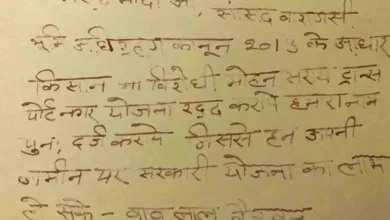 मोदी जी, सांसद वाराणसी
भूमि अधिग्रहण कानून 2013 के आधार
किसान विरोधी मोहन सराय ट्रान्स
पोर्ट नगर योजना रद्द कराये हमारा नाम
पुनः दर्ज कराये जिससे हम अपनी
जमीन पर सरकारी योजना का लाभ
ले सके - लाल